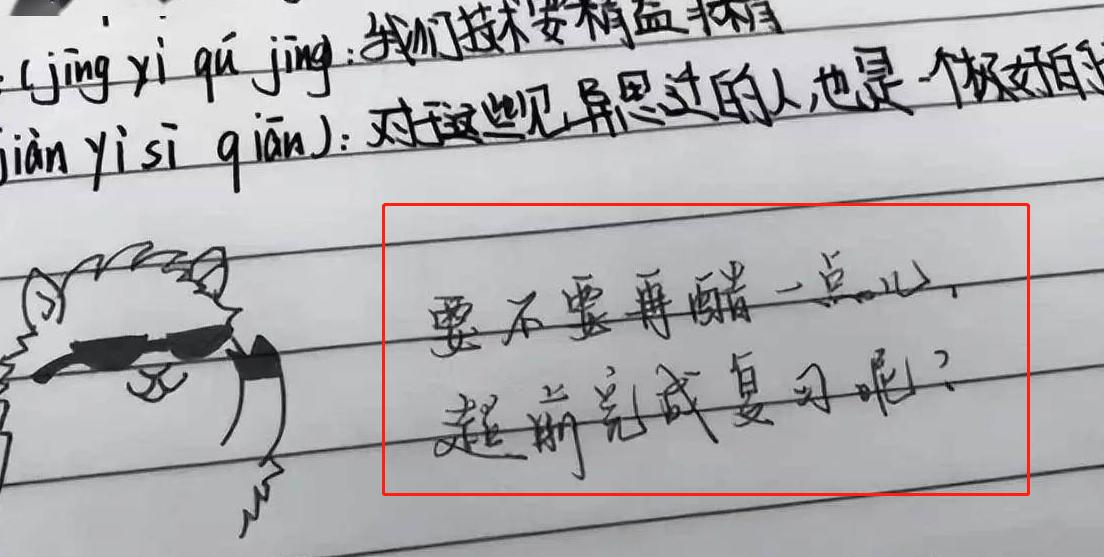 (jīng yì qú jīng):我们技术要精益求精
jiàn yì sī qiān):对于这些见异思过的人,也是一个极好的
要不要再醋一点心,
超前完成复习呢?